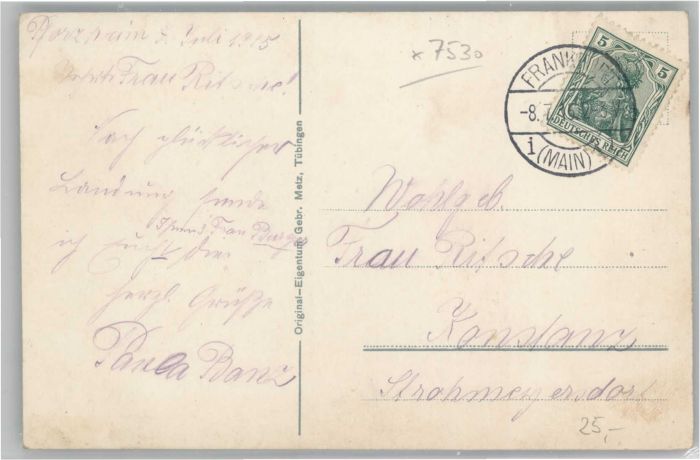 Pforzheim 5. Juli 1915
Frau Ritsche!
Nach glücklicher
Landung sende
Ihnen u. Frau Burger
ich die
herzl. Grüße
Paula Banz
Original-Eigentum Gebr. Metz, Tübingen
x 7530
FRANKF
-8.7
1 (MAIN)
5 5
DEUTSCHES REICH
Wohlgeb.
Frau Ritsche
Konstanz
Strohmeyersdorf
25,-